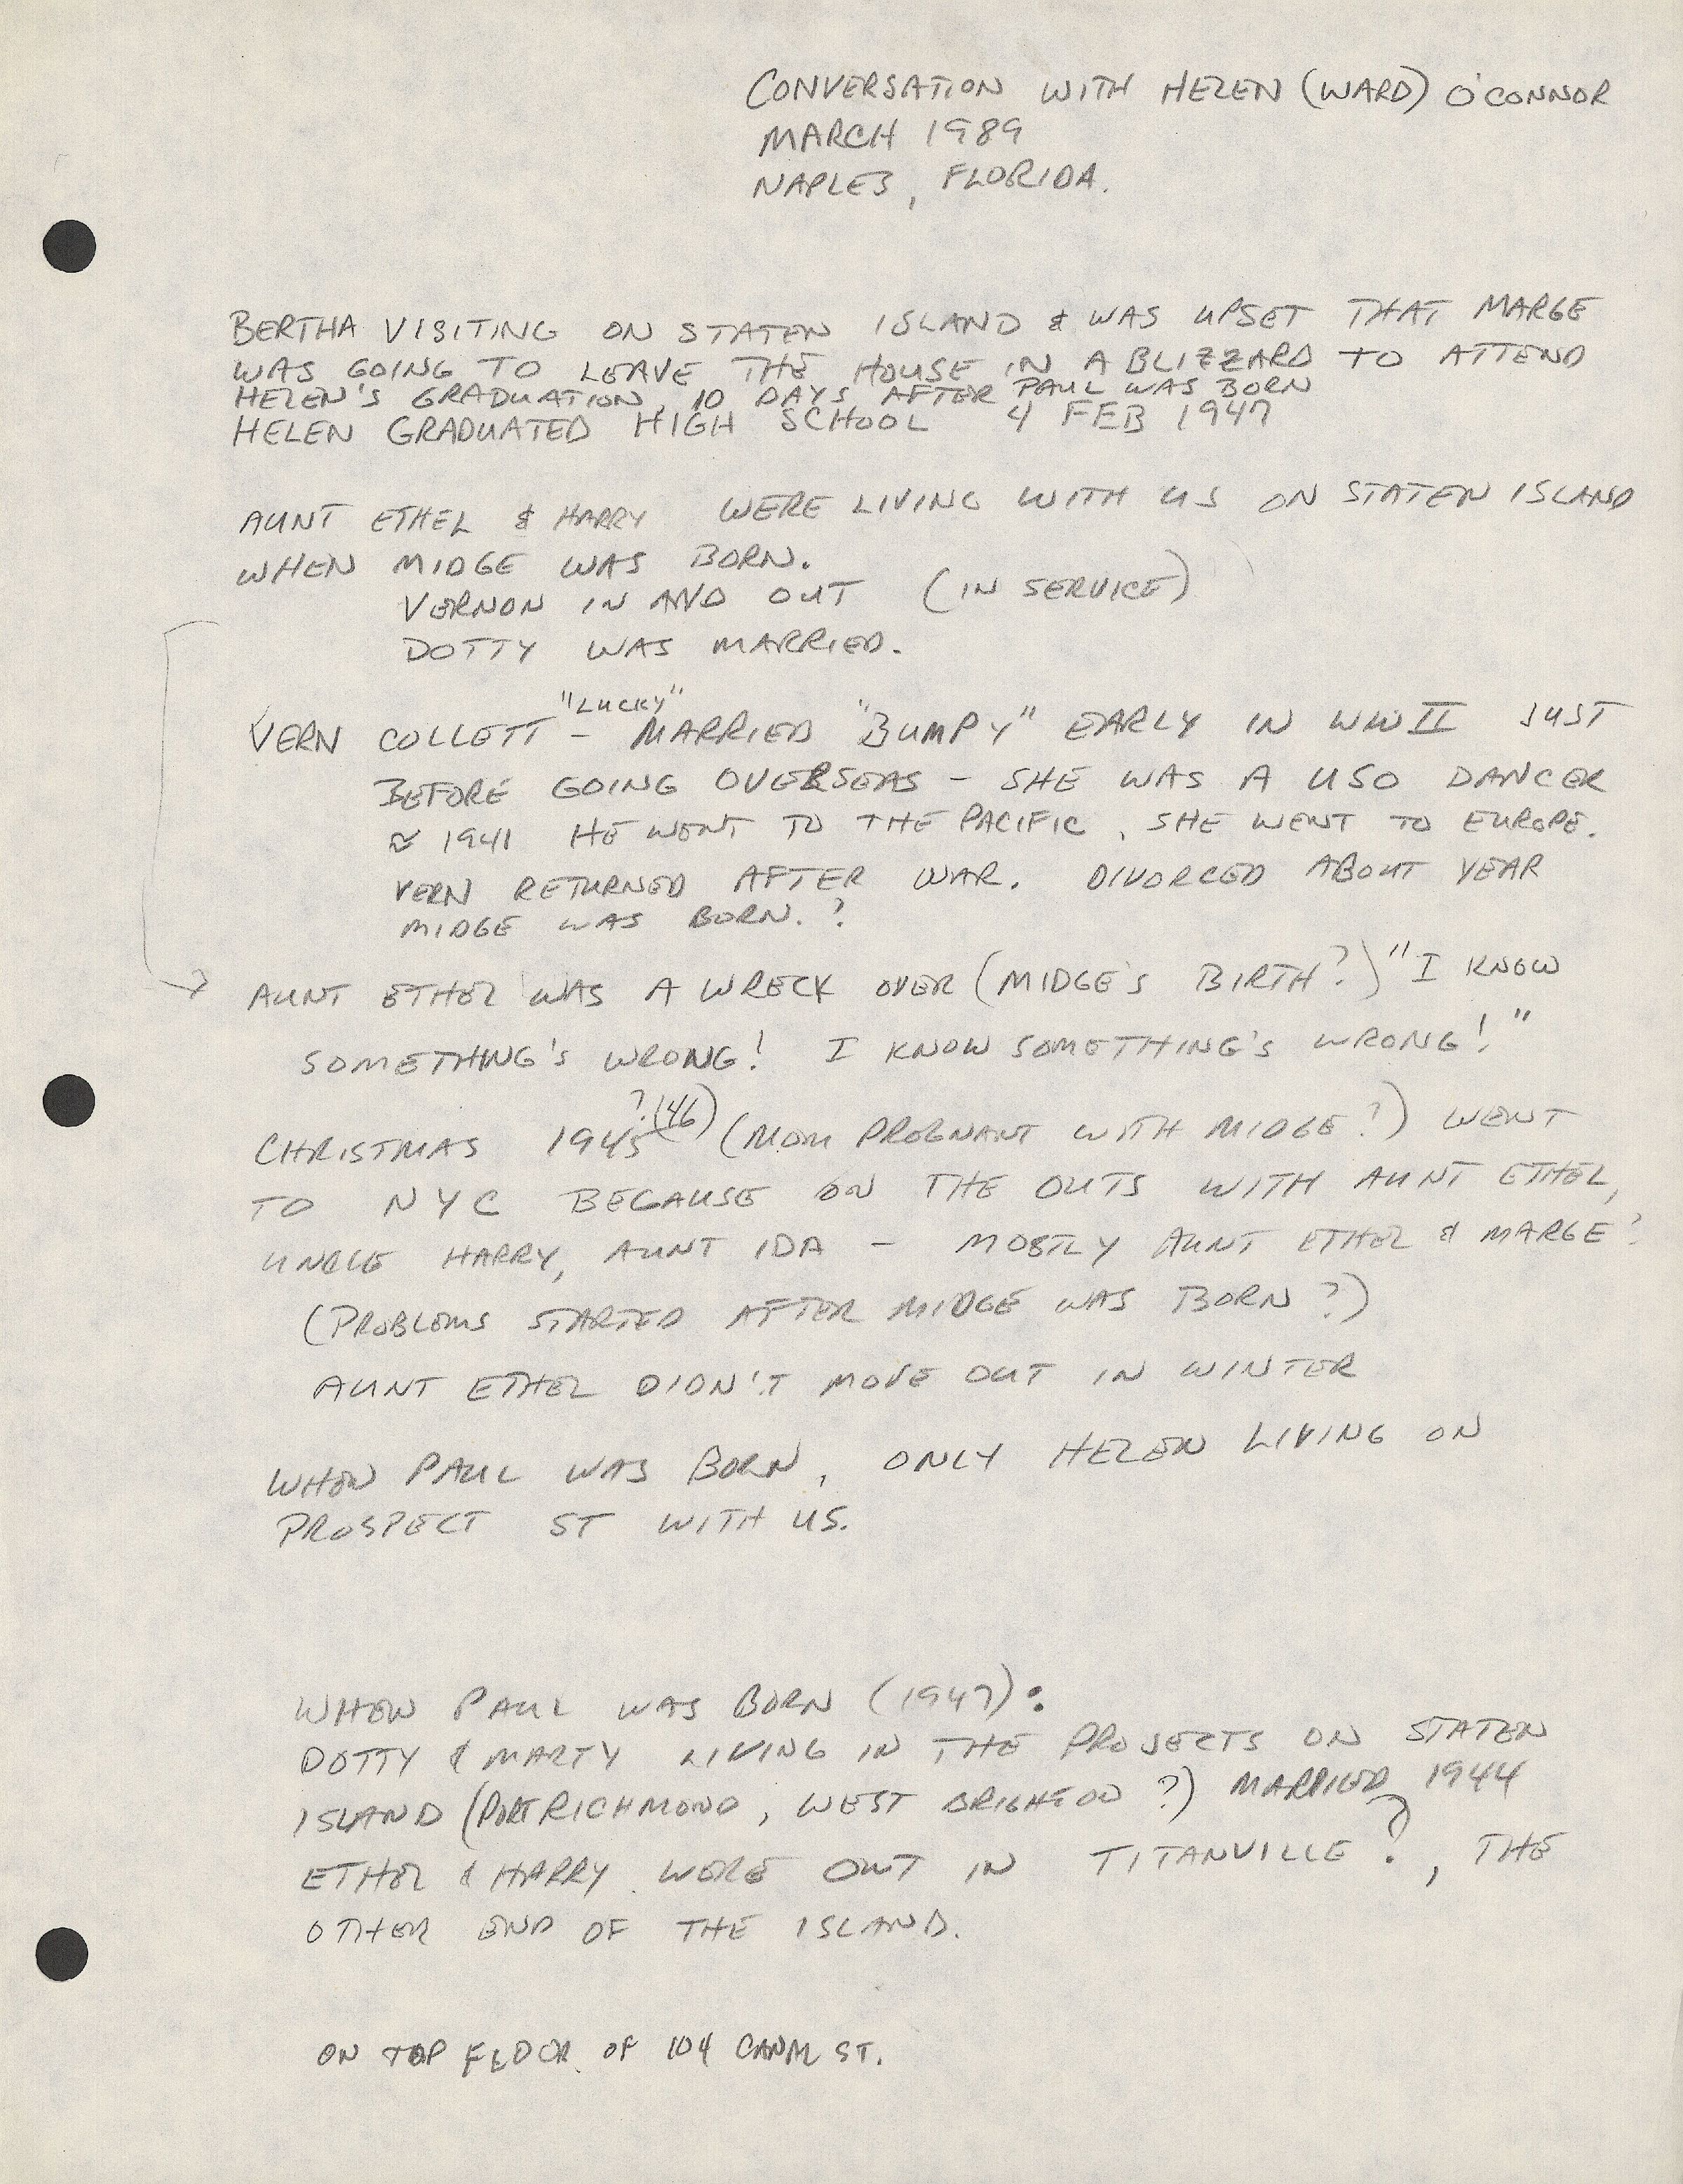 CONVERSATION WITH HELEN (WARD) O'CONNOR
MARCH 1989
NAPLES, FLORIDA.
BERTHA VISITING ON STATEN ISLAND & WAS UPSET THAT MARGE
WAS GOING TO LEAVE THE HOUSE IN A BLIZZARD TO ATTEND
HELEN'S GRADUATION, 10 DAYS AFTER PAUL WAS BORN
HELEN GRADUATED HIGH SCHOOL 4 FEB 1947
AUNT ETHEL & HARRY WERE LIVING WITH US ON STATEN ISLAND
WHEN MIDGE WAS BORN.
VERNON IN AND OUT (IN SERVICE)
DOTTY WAS MARRIED.
"LUCKY"
VERN COLLETT - MARRIED "BUMPY" EARLY IN WWII JUST
BEFORE GOING OVERSEAS - SHE WAS A USO DANCER
≈ 1941 HE WENT TO THE PACIFIC, SHE WENT TO EUROPE.
VERN RETURNED AFTER WAR. DIVORCED ABOUT YEAR
MIDGE WAS BORN.?
AUNT ETHEL WAS A WRECK OVER (MIDGE'S BIRTH?) "I KNOW
SOMETHING'S WRONG! I KNOW SOMETHING'S WRONG!"
CHRISTMAS 1945 ?(46) (MOM PREGNANT WITH MIDGE?) WENT
TO NYC BECAUSE ON THE OUTS WITH AUNT ETHEL,
UNCLE HARRY, AUNT IDA - MOSTLY AUNT ETHEL & MARGE?
(PROBLEMS STARTED AFTER MIDGE WAS BORN?)
AUNT ETHEL DIDN'T MOVE OUT IN WINTER
WHEN PAUL WAS BORN, ONLY HELEN LIVING ON
PROSPECT ST WITH US.
WHEN PAUL WAS BORN (1947):
DOTTY & MARTY LIVING IN THE PROJECTS ON STATEN
ISLAND (PORT RICHMOND, WEST BRIGHTON ?) MARRIED 1944
ETHEL & HARRY WERE OUT IN TITANVILLE ?, THE
OTHER END OF THE ISLAND.
ON TOP FLOOR OF 104 CANAL ST.